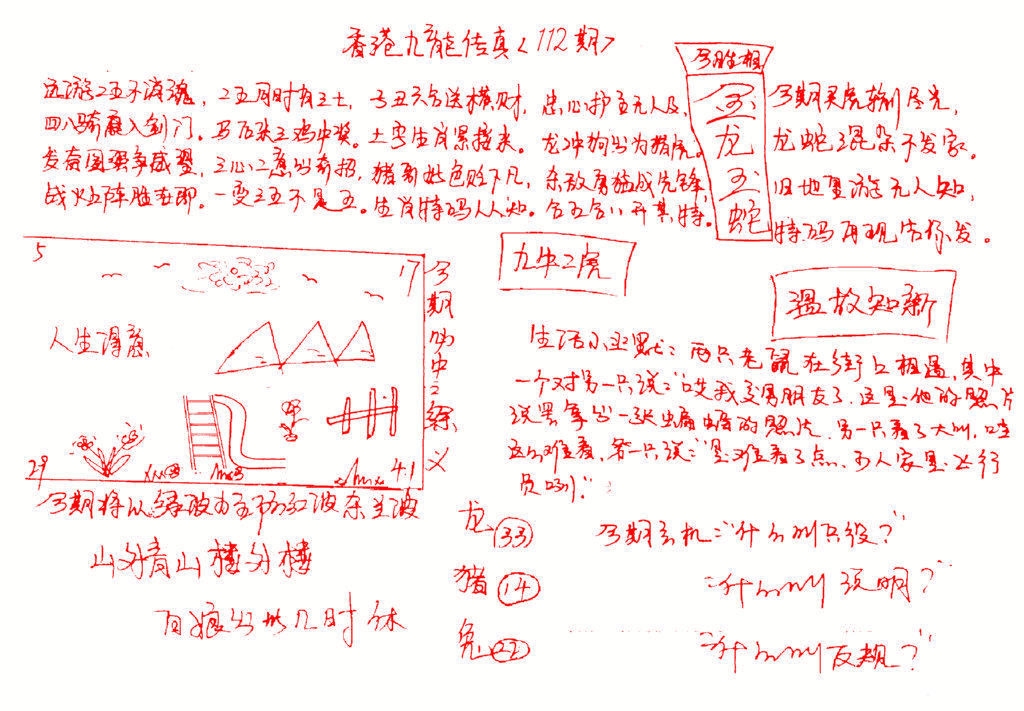 香港九龙传真<112期>
二五不同时有三士,今丑六合送横财,忠心护主无人及,
四八骑鹿入剑门。马后张三鸡中奖。土字生肖累接来。龙冲狗当为猪虎。
发奋图强争威望,三心二意出奇招,猪哥好色贬下凡,杂敌勇猛成先锋,
战火五阵胜在即。一变三五不是五。生肖特码人人知。合五合八开其特。
今胜相
金
龙
玉
蛇
今期买虎输尽光,
龙蛇混杂不发家。
旧地重游无人知,
特码再现告你发。
5
17
人生得意
29
41
今期四中三练义
九牛二虎
温故知新
生活小幽默:两只老鼠在街上相遇,其中
一个对另一只说:"哎我交男朋友了,这是他的照片
说罢拿出一张蝙蝠的照片,另一只看了大叫,哇
这么难看,第一只说:"是难看了点,可人家是飞行
员咧!"
今期将以绿波为主防红波杂兰波
山外青山楼外楼
百娘出世几时休
龙(33)
猪(14)
兔(22)
今期玄机:"什么叫只役?"
"什么叫说明?"
"什么叫反规?"